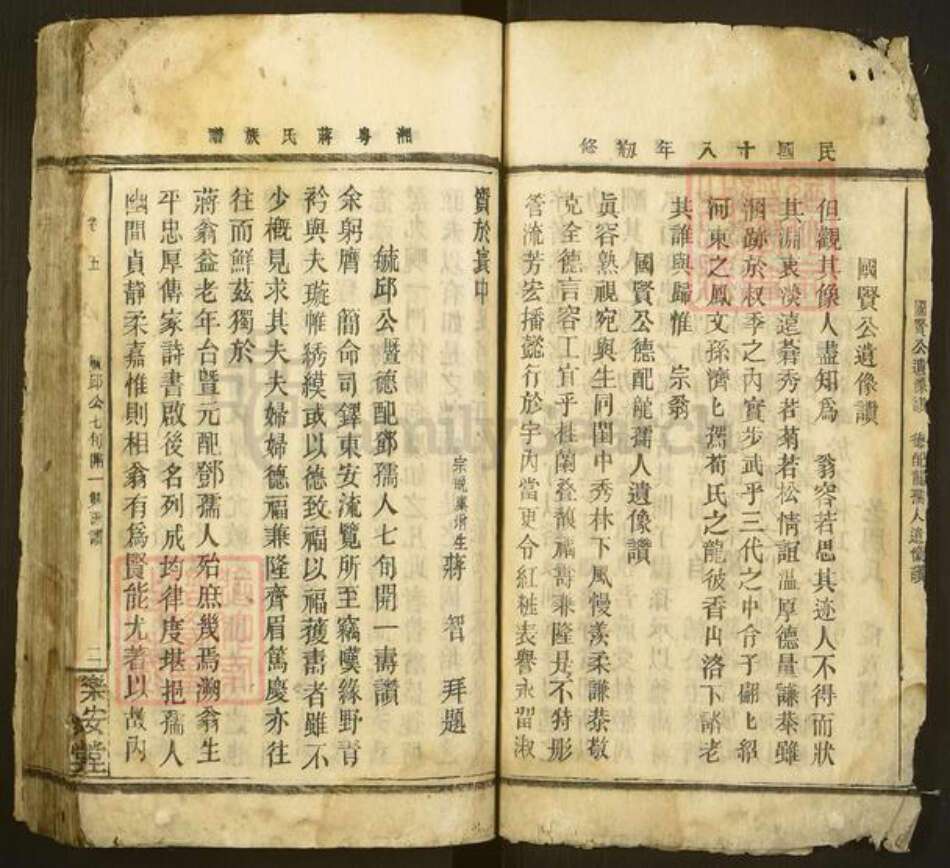 民國十八年初修
國賢公遺像讚 德配龍孺人遺像讚
國賢公遺像讚
但觀其像人盡知爲 翁容若思其迹人不得而狀
其淵衷淡遠蒼秀若菊若松情誼溫厚德量謙恭雖
溷跡於叔季之內實步武乎三代之中令子翩匕紹
河東之鳳文孫濟匕擢荀氏之龍彼香山洛下諸老
其誰與歸惟 宗翁
國賢公德配龍孺人遺像讚
眞容熟視宛與生同閨中秀林下風慢羨柔謙恭敬
克全德言容工宜乎桂蘭叠馥福壽兼隆是不特彤
管流芳宏播懿行於宇內當更令紅粧表譽永留淑
湘粵蔣氏族譜
質於寰中
宗晚稟增生蔣 智 拜題
毓邱公暨德配鄧孺人七旬開一壽讚
余躬膺 簡命司鐸東安流覽所至竊嘆緣野青
衿與夫璇帷綉繢或以德致福以福獲壽者雖不
少概見求其夫夫婦婦德福兼隆齊眉篤慶亦往
往而鮮茲獨於
蔣翁益老年台暨元配鄧孺人殆庶幾焉溯翁生
平忠厚傳家詩書啟後名列成均律度堪挹孺人
幽閒貞靜柔嘉惟則相翁有爲賢能尤著以故內
卷五 毓邱公七旬開一雙壽讚 二 樂安堂